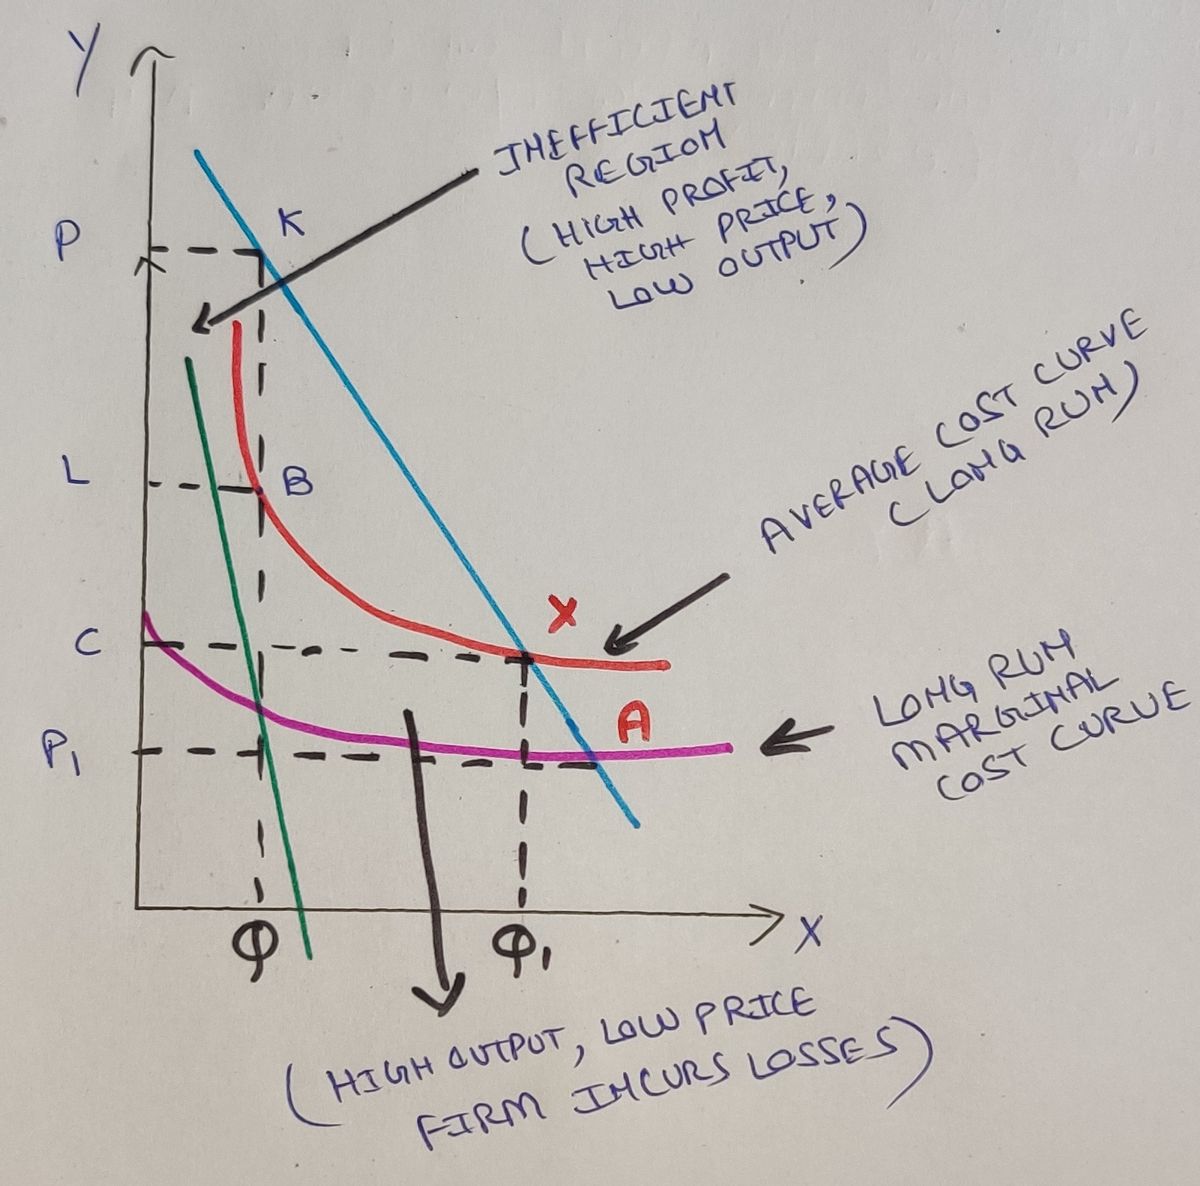 Y
INEFFICIENT
REGION
(HIGH PROFIT,
HIGH PRICE,
LOW OUTPUT)
P
K
AVERAGE COST CURVE
(LONG RUN)
L
B
X
C
A
LONG RUN
MARGINAL
COST CURVE
P1
X
φ
φ1
(HIGH OUTPUT, LOW PRICE
FIRM INCURS LOSSES)